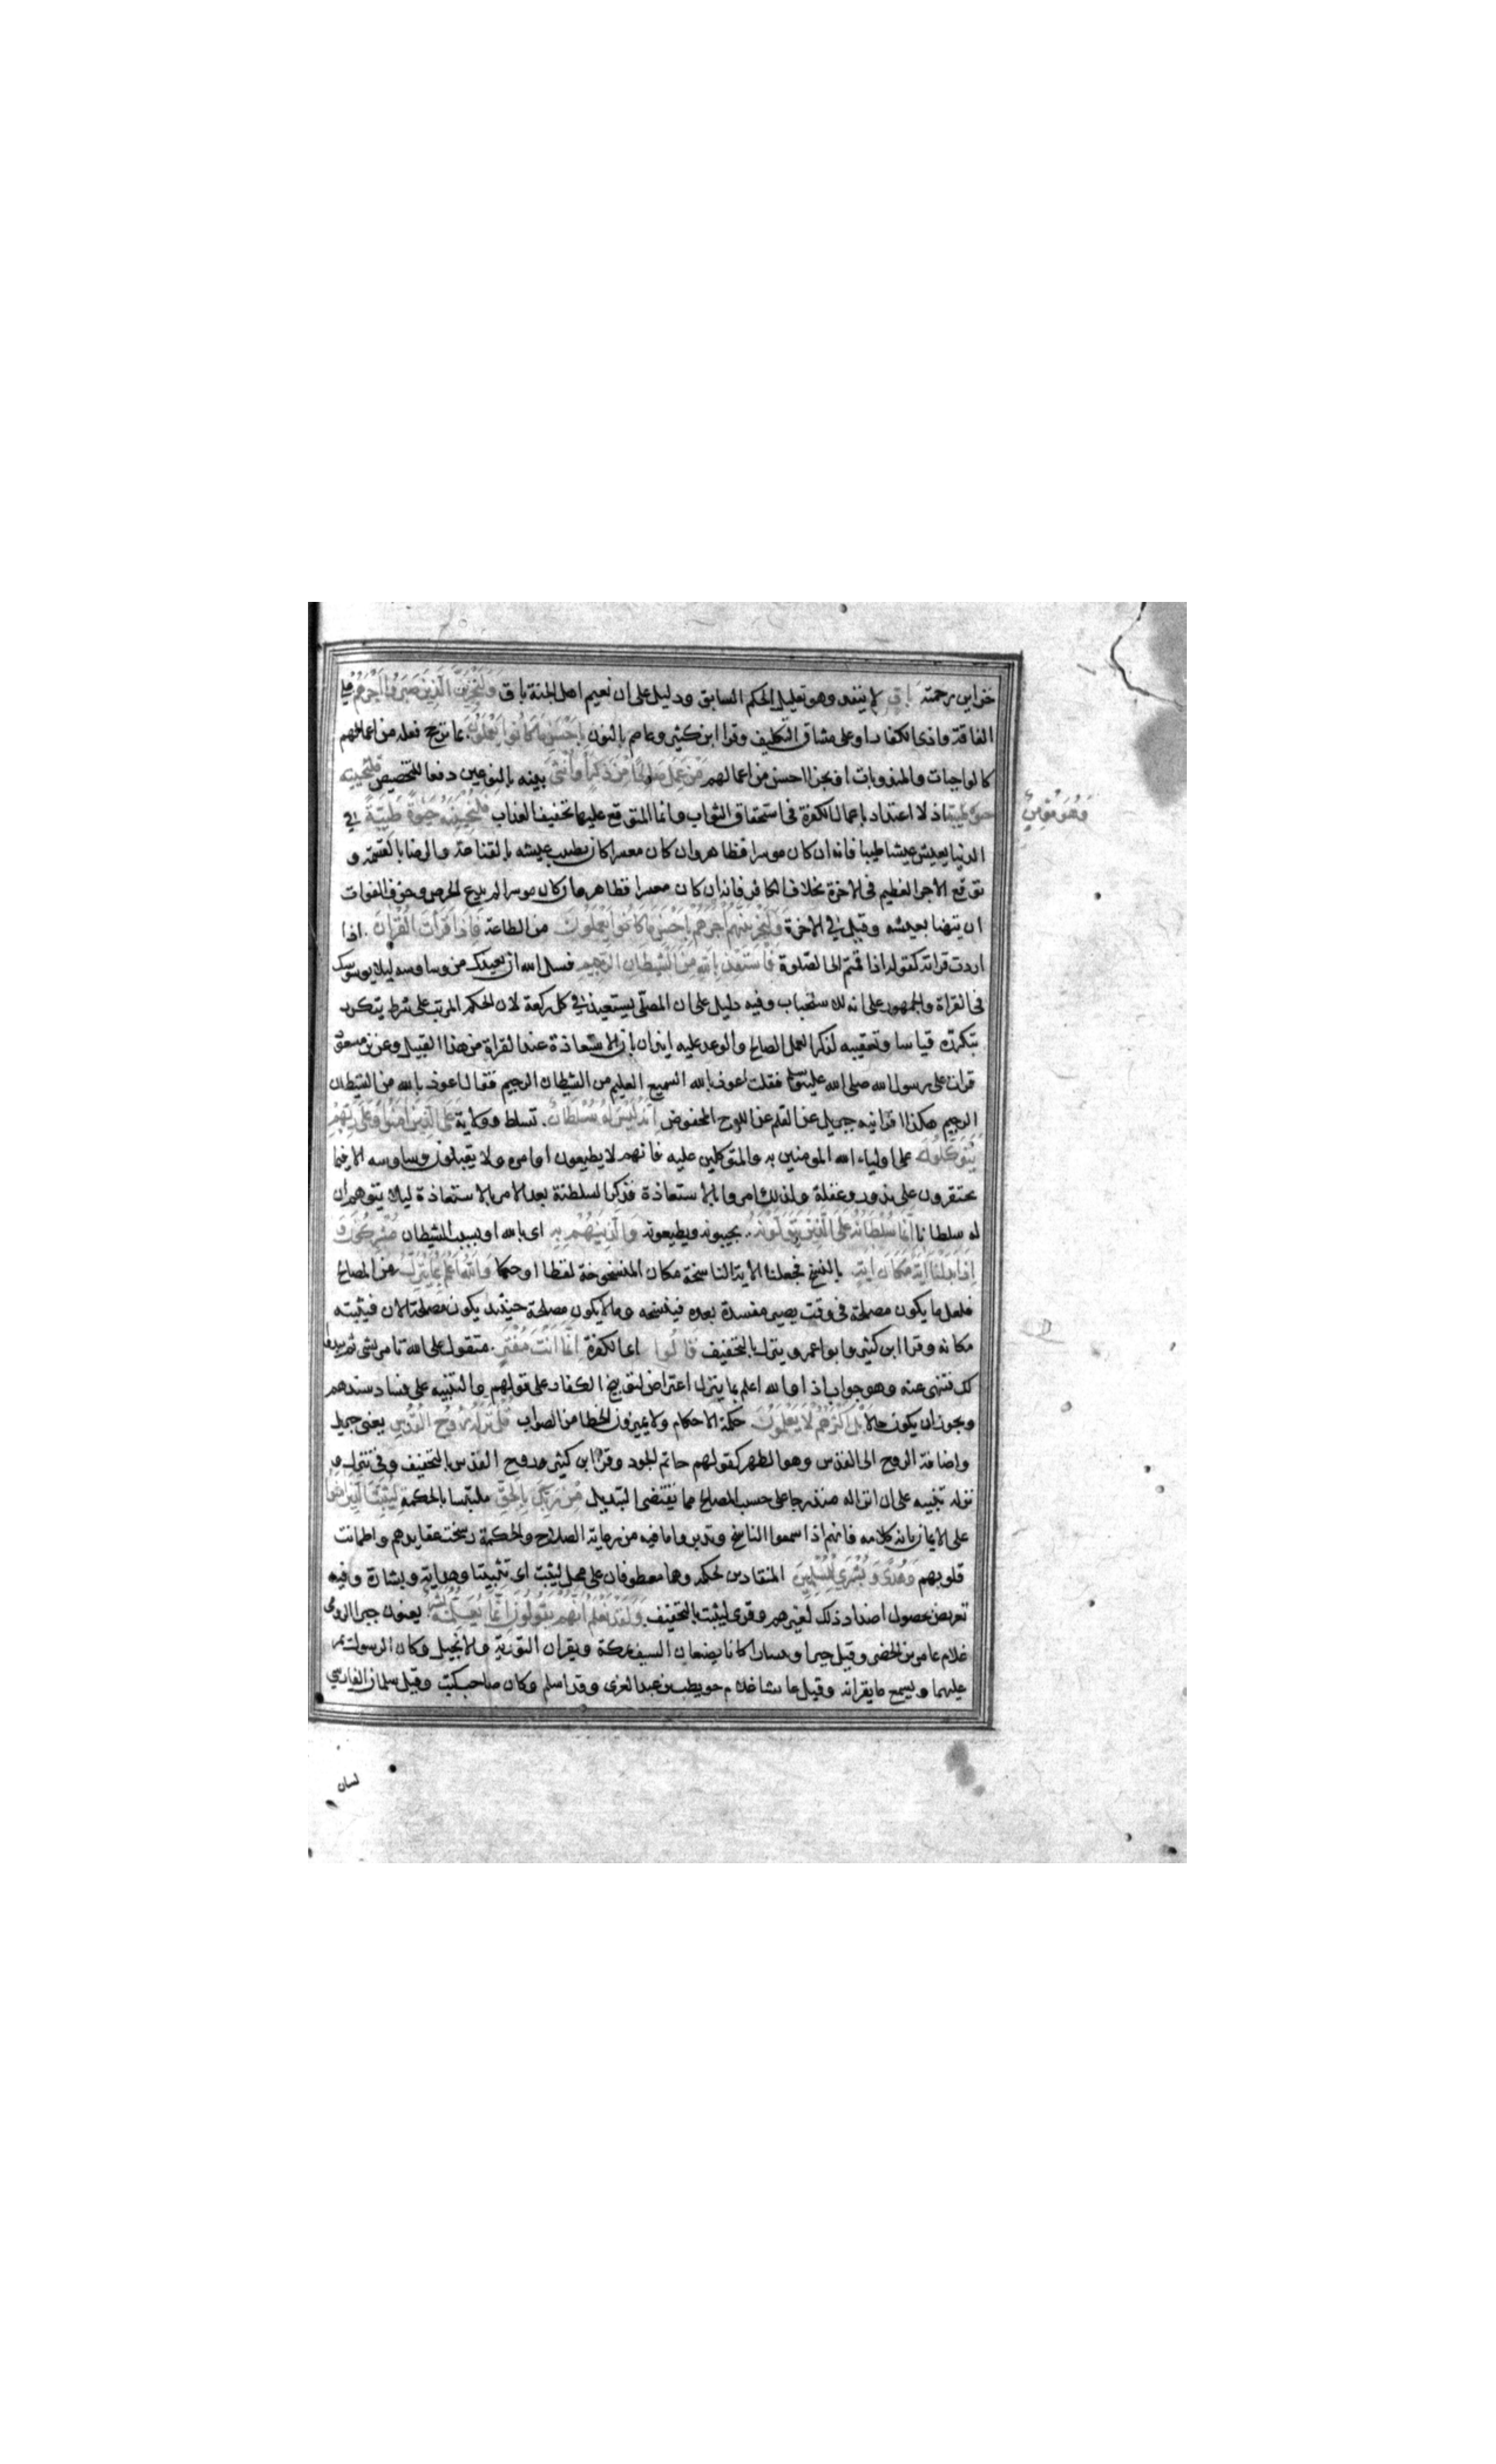 خزاين رحمته باق لا ينفد وهو تعليل للحكم السابق ودليل على ان نعيم اهل الجنة باق وَلَنَجْزِيَنَّ الَّذِينَ صَبَرُوا أَجْرَهُمْ على
الفاقة واذى الكفار او على مشاق التكليف وقرا ابن كثير وعاصم بالنون بِأَحْسَنِ مَا كَانُوا يَعْمَلُونَ بما ترجح فعله من اعمالهم
كالواجبات والمندوبات او بجزا احسن من اعمالهم مَنْ عَمِلَ صَالِحًا مِنْ ذَكَرٍ أَوْ أُنْثَى بينه بالنوعين دفعا للتخصيص فلنحيينه
حيوة طيبة اذ لا اعتداد باعمال الكفرة فى استحقاق الثواب وانما المتوقع عليها تخفيف العذاب فَلَنُحْيِيَنَّهُ حَيٰوةً طَيِّبَةً في
وَهُوَ مُؤْمِنٌ
الدنيا يعيش عيشا طيبا فانه ان كان موسرا فظاهر وان كان معسرا كان يطيب عيشه بالقناعة والرضا بالقسمة و
توقع الاجر العظيم فى الاخرة بخلاف الكافر فانه ان كان معسرا فظاهر وان كان موسرا لم يدع الحرص وخوف الفوات
ان يتهنا بعيشه وقيل في الاخرة وَلَنَجْزِيَنَّهُمْ أَجْرَهُمْ بِأَحْسَنِ مَا كَانُوا يَعْمَلُونَ من الطاعة فَإِذَا قَرَأْتَ الْقُرْآنَ اذا
اردت قراته كقوله اذا قمتم الى الصلوة فَاسْتَعِذْ بِاللَّهِ مِنَ الشَّيْطَانِ الرَّجِيمِ فسل الله ان يعيذك من وساوسه ليلا يوسوسك
فى القراة والجمهور على انه للاستحباب وفيه دليل على ان المصلّى يستعيذ في كل ركعة لان الحكم المرتب على شرط يتكرر
بتكرره قياسا وتعقيبه لذكر العمل الصالح والوعد عليه ايذان بان الاستعاذة عند القراة من هذا القبيل وعن بن مسعود
قرات على رسول الله صلى الله عليه وسلم فقلت اعوذ بالله السميع العليم من الشيطان الرجيم فقال اعوذ بالله من الشيطان
الرجيم هكذا اقرانيه جبريل عن القلم عن اللوح المحفوض إِنَّهُ لَيْسَ لَهُ سُلْطَانٌ تسلط وولاية عَلَى الَّذِينَ آمَنُوا وَعَلَى رَبِّهِمْ
يَتَوَكَّلُونَ على اولياء الله المومنين به والمتوكلين عليه فانهم لا يطيعون اوامره ولا يقبلون وساوسه الا فيما
يحتقرون على ندور وغفلة ولذلك امروا بالاستعاذة فذكر السلطنة بعد الامر بالاستعاذة ليلا يتوهم ان
له سلطانا إِنَّمَا سُلْطَانُهُ عَلَى الَّذِينَ يَتَوَلَّوْنَهُ يحبونه ويطيعونه وَالَّذِينَ هُمْ بِهِ اى بالله او بسبب الشيطان مُشْرِكُونَ وَ
إِذَا بَدَّلْنَا آيَةً مَكَانَ آيَةٍ بالنسخ فجعلنا الاية الناسخة مكان المنسوخة لفظا او حكما وَاللَّهُ أَعْلَمُ بِمَا يُنَزِّلُ من المصالح
فلعل ما يكون مصلحة فى وقت يصير مفسدة بعده فينسخه وما لا يكون مصلحة حينئذ يكون مصلحة الان فيثبته
مكانه وقرا ابن كثير وابو عمرو ينزل بالتخفيف قَالُوا اى الكفرة إِنَّمَا أَنْتَ مُفْتَرٍ متقول على الله تامر بشى ثم يبدو
لك فتنهى عنه وهو جواب اذا والله اعلم بما ينزل اعتراض لتوبيخ الكفار على قولهم والتنبيه على فساد سندهم
ويجوز ان يكون حالا بَلْ أَكْثَرُهُمْ لَا يَعْلَمُونَ حكمة الاحكام ولا يميزون الخطا من الصواب قُلْ نَزَّلَهُ رُوحُ الْقُدُسِ يعنى جبريل
واضافة الروح الى القدس وهو الطهر كقولهم حاتم الجود وقرا ابن كثير روح القدس بالتخفيف وفى ينزل و
نزله تنبيه على ان انزاله مندرجا على حسب المصالح مما يقتضى التبديل مِنْ رَبِّكَ بِالْحَقِّ ملتبسا بالحكمة لِيُثَبِّتَ الَّذِينَ آمَنُوا
على الايمان بانه كلامه فانهم اذا سمعوا الناسخ وتدبروا ما فيه من رعاية الصلاح والحكمة رسخت عقايدهم واطمانت
قلوبهم وَهُدًى وَبُشْرَى لِلْمُسْلِمِينَ المنقادين لحكمه وهما معطوفان على محل ليثبت اى تثبيتا وهداية وبشارة وفيه
تعريض بحصول اضداد ذلك لغيرهم وقرى ليثبت بالتخفيف وَلَقَدْ نَعْلَمُ أَنَّهُمْ يَقُولُونَ إِنَّمَا يُعَلِّمُهُ بَشَرٌ يعنون جبرا الرومى
غلام عامر بن الحضرمى وقيل جبرا ويسارا كانا يصنعان السيف بمكة ويقران التورية والانجيل وكان الرسول يمر
عليهما ويسمع ما يقرانه وقيل عايشا غلام حويطب بن عبد العزى وقد اسلم وكان صاحب كتب وقيل سلمان الفارسي
لسان